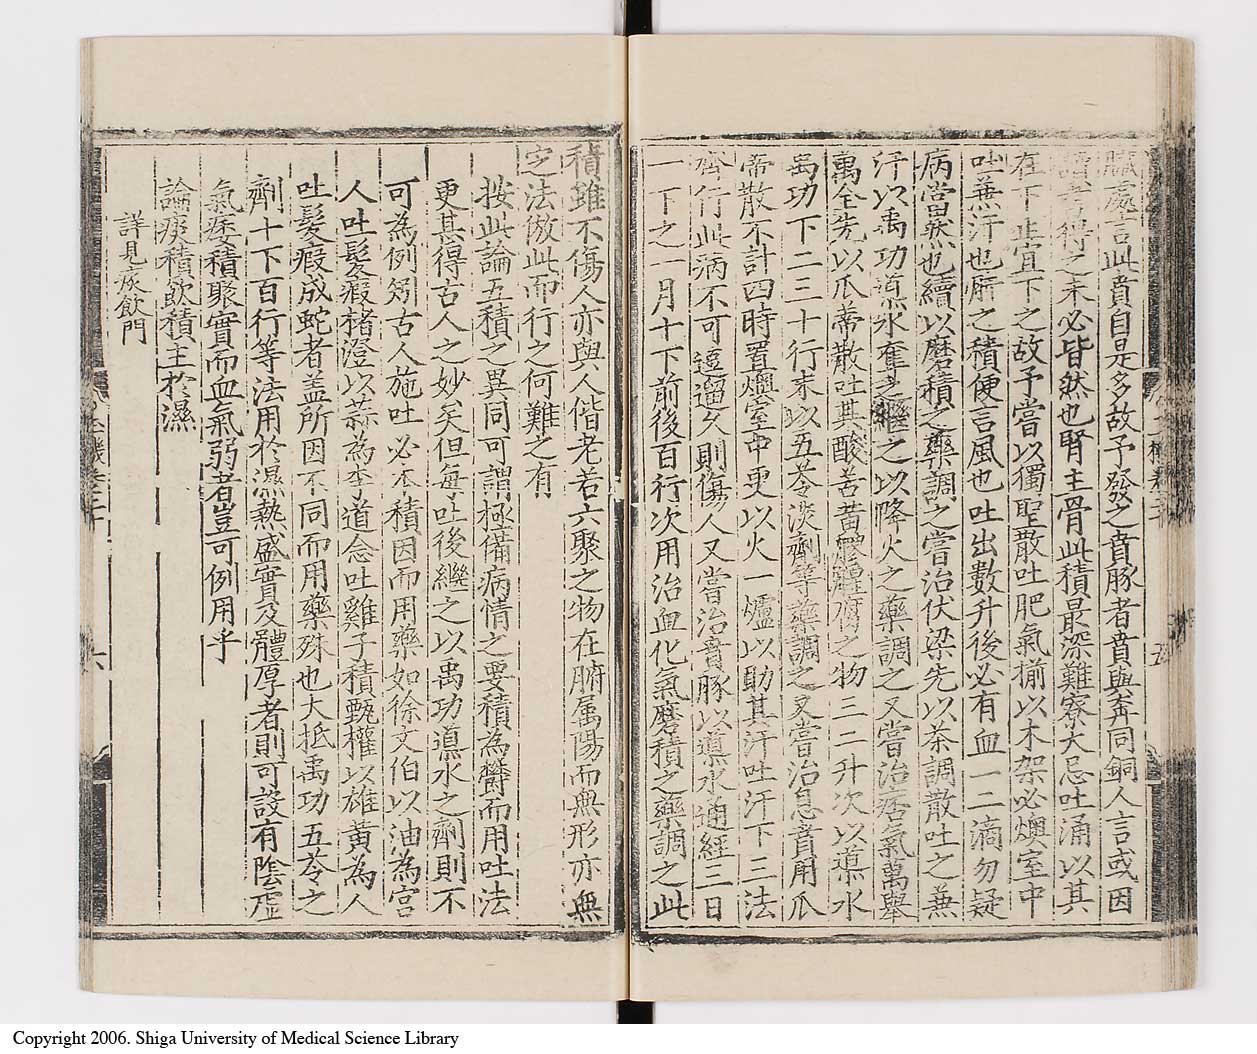 臟處言此賁自是多故予發之賁豚者賁與奔同銅人言或因
讀書得之未必皆然也腎主骨此積最深難療大忌吐涌以其
在下止宜下之故予嘗以獨聖散吐肥氣揃以木架必燠室中
吐兼汗也肝之積便言風也吐出數升後必有血一二滴勿疑
病當然也續以磨積之藥調之嘗治伏梁先以茶調散吐之兼
汗以禹功導水奪之繼之以降火之藥調之又嘗治痞氣萬舉
萬全先以瓜蒂散吐其酸苦黃膠腥腐之物三二升次以導水
禹功下二三十行末以五苓淡劑等藥調之又嘗治息賁用瓜
蒂散不計四時置燠室中更以火一爐以助其汗吐汗下三法
齊行此病不可逗遛久則傷人又嘗治賁豚以導水通經三日
一下之一月十下前後百行次用治血化氣磨積之藥調之此
積雖不傷人亦與人偕老若六聚之物在腑属陽而無形亦無
定法倣此而行之何難之有
按此論五積之異同可謂極備病情之要積為欝而用吐法
更其得古人之妙矣但每吐後繼之以禹功導水之劑則不
可為例矧古人施吐必本積因而用藥如徐文伯以油為宮
人吐髮瘕褚澄以蒜為李道念吐雞子積甄權以雄黃為人
吐髮瘕成蛇者盖所因不同而用藥殊也大抵禹功五苓之
劑十下百行等法用於濕熱盛實及體厚者則可設有陰虛
氣痿積聚實而血氣弱者豈可例用乎
論痰積飲積主於濕
詳見痰飲門
六
五
Copyright 2006. Shiga University of Medical Science Library